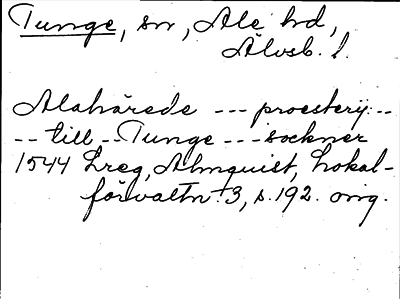 Tunge, sn, Ale hd,
Älvsb. l.
Alahärede --- proestery:--
-- till -- Tunge --- sockner
1544 Lreg, Almquist, Lokal-
förvaltn. 3, s. 192. orig.